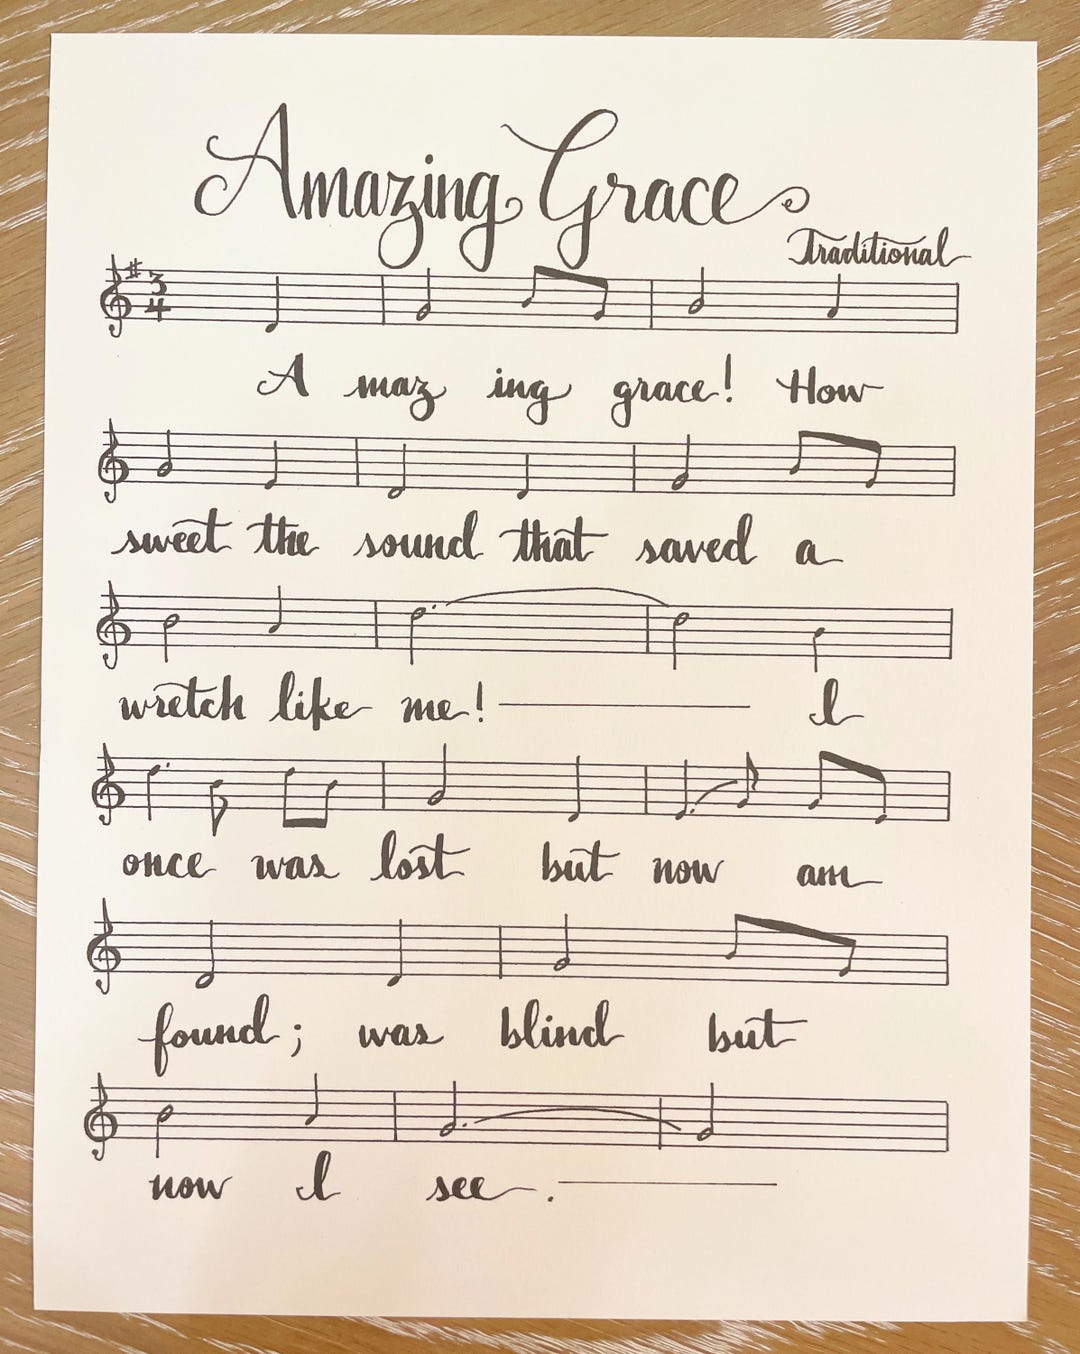 Amazing Grace
Traditional
3
4
A maz ing grace! How
sweet the sound that saved a
wretch like me! I
once was lost but now am
found; was blind but
now I see.